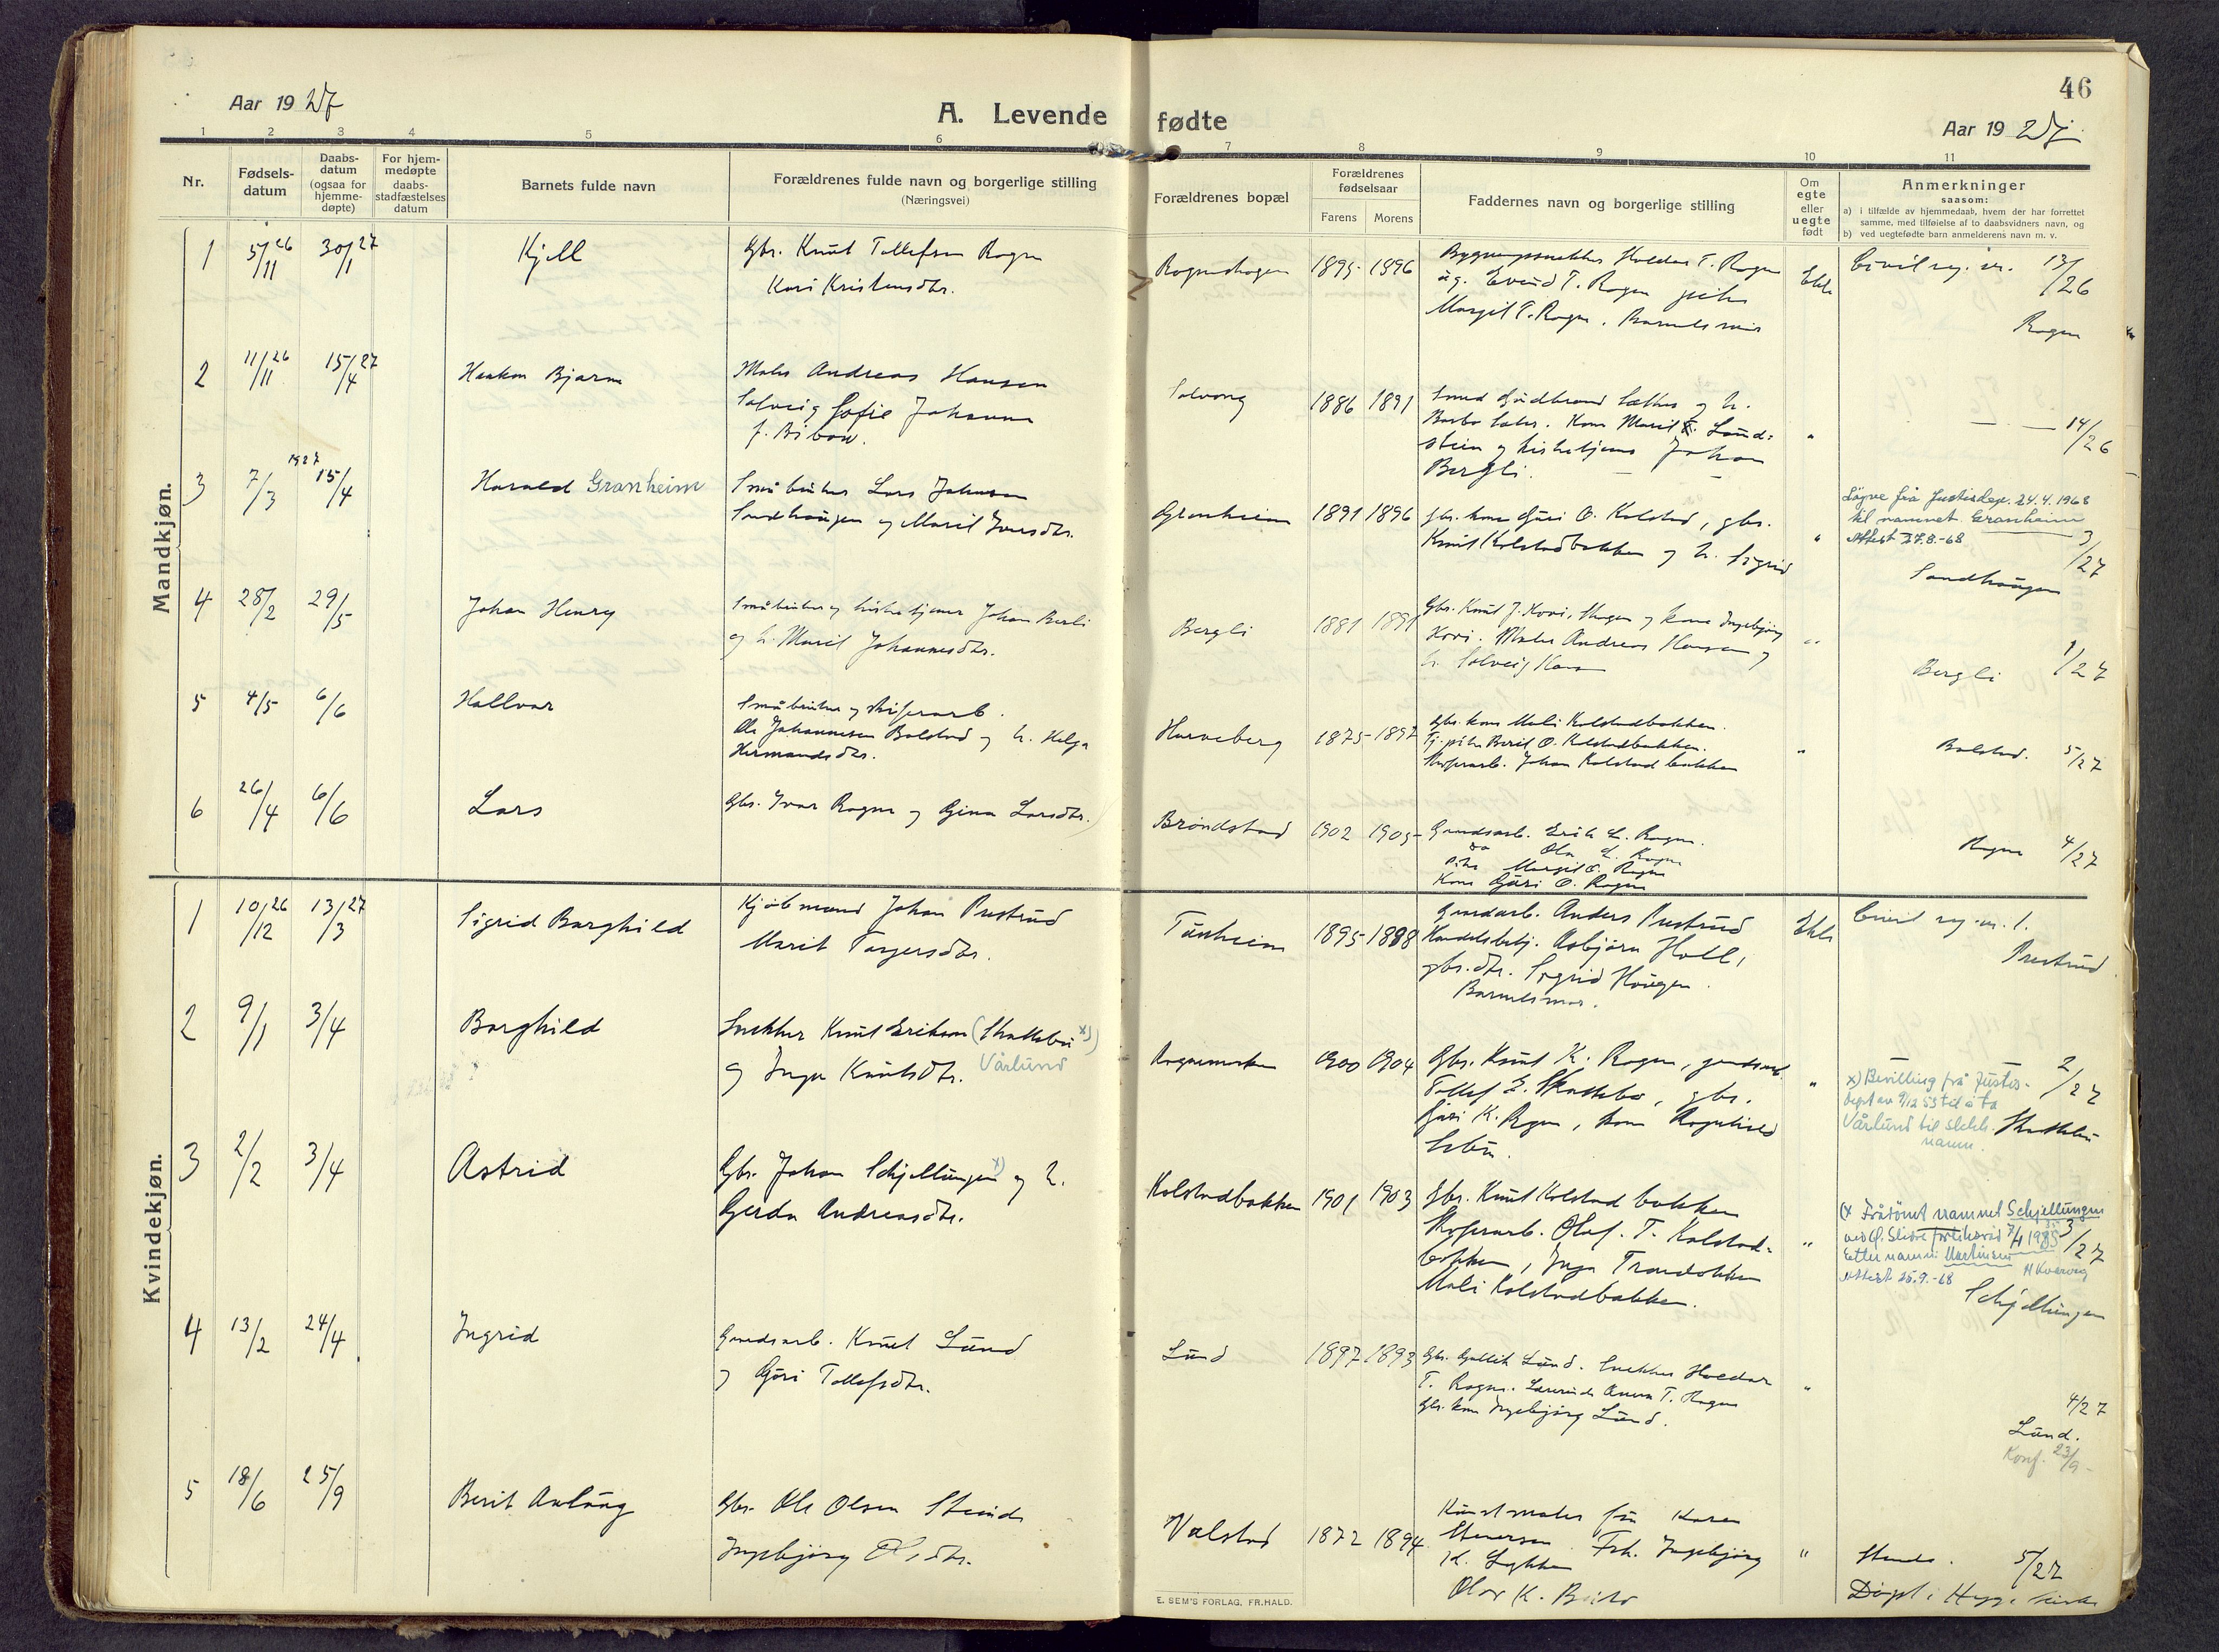 46
Aar 1927
A. Levende fødte
Aar 1927
1 2 3 4 5 6 7 8 9 10 11
Nr.
Fødsels-
datum
Daabs-
datum
(ogsaa for
hjemme-
døpte)
For hjem-
medøpte
daabs-
stadfæstelses
datum
Barnets fulde navn
Forældrenes fulde navn og borgerlige stilling
(Næringsvei)
Forældrenes bopæl
Forældrenes
fødselsaar
Farens Morens
Faddernes navn og borgerlige stilling
Om
egte
eller
uegte
født
Anmerkninger
saasom:
a) i tilfælde av hjemmedaab, hvem der har forrettet
samme, med tilføielse af to daabsvidners navn, og
b) ved uegtefødte barn anmelderens navn m. v.
Mandkjøn.
1 5/11 26 30/1 27 Kjell
Gbr. Knut Tollefsen Rogn
Kari Kristensdtr.
Rognshagen 1895 1896
Halder T. Rogn
ug. Eivind T. Rogn pike
Margit T. Rogn. Barnets mor
Ekte
Civil reg. nr. 13/26
Rogn
2 11/11 26 15/4 27 Haakon Bjarne
Maler Andreas Hansen
Solveig Sofie Johanne
f. Bibow.
Solvang 1886 1891
Smed Gudbrand Sæther og h.
Kone Marit Lund-
stein og Johan
Bergli.
" — " — 14/26
3 7/3 1927 15/4 Harald Granheim
Småbruker Lars Johnsen
Sandhaugen og Marit Iversdtr.
Granheim 1891 1896
gbr. kone Guri O. Kolstad, gbr.
Knut Kolstadbakken og h. Sigrid
"
Løyve frå Justisdep. 24.4.1968
til namnet Granheim
Attest 27.8.-68
3/27
Sandhaugen
4 28/2 29/5 Johan Henry
Småbruker og Johan Berli
og h. Marit Johannesdtr.
Bergli 1881 1891
Gbr. Knut J. Hovi, og kone Ingebjørg
Hovi. Maler Andreas Hansen og
h. Solveig
"
1/27
Bergli
5 4/5 6/6 Hallvar
Småbruker og skiferarb.
Ole Johannesen Bolstad og h. Helga
Hermandsdtr.
Harveberg 1875 1892
Gbr. kone Mali Kolstadbakken.
Tj. pike Berit O. Kolstadbakken.
Skiferarb. Johan Kolstadbakken
"
Bolstad. 5/27
6 26/4 6/6 Lars
Gbr. Ivar Rogn og Gina Larsdtr.
Brøndstad 1902 1905
Gaardsarb. Erik L. Rogn.
do Ola L. Rogn
Pike Margit O. Rogn
Kone Guri O. Rogn
Rogn 4/27
Kvindekjøn.
1 10/12 26 13/3 27 Sigrid Borghild
Kjøbmand Johan Prestrud
Marit Torgersdtr.
Tunheim 1895 1898
Gaardarb. Anders Prestrud
Handelsbetj. Asbjørn Hall,
gbr. dtr. Sigrid Haugen.
Barnets mor.
Ekte
Civil reg. nr. 1.
Prestrud
2 9/1 3/4 Borghild
Snekker Knut Eriksen (Skattebu x)
og Inga Knutsdtr. Vårlund
Rognemoken 1900 1904
Gbr. Knut K. Rogn, gaardsarb.
Tollef E. Skattebo, gbr.
Guri K. Rogn, kone Ragnhild
"
2/27
x) Bevilling frå Justis-
dept av 9/12 53 til å ta
Vårlund til slekts-
namn.
Skattebu
3 2/2 3/4 Astrid
Gbr. Johan Schjellungen x) og h.
Gerda Andreasdtr.
Kolstadbakken 1901 1903
Gbr. Knut Kolstadbakken
Skiferarb. Olaf. T. Kolstad-
bakken, Inga Trondokken
Mali Kolstadbakken.
"
(x Frådømt namnet Schjellungen
ved Ø. Slidre 1935
Etternamn: Martinsen
Attest 25.9.-68 H Kvarving
3/27
Schjellungen
4 13/2 24/4 Ingrid
Gaardsarb. Knut Lund
og Guri Tollefsdtr.
Lund 1897 1893
Gbr. Gullik Lund. Snekker Haldor
T. Rogn. Anna T. Rogn
Gbr. kone Ingebjørg Lund.
"
4/27
Lund.
Konf. 23/9-
5 18/6 25/9 Berit Aslaug
Gbr. Ole Olsen Steinde
Ingebjørg Olsdtr.
Valstad 1872 1894
Kunstmaler fru Karen
Frk. Ingebjørg
K. Lykken
Olav K. Beito
"
Steinde. 5/27
Døpt i Hegge kirke
E. SEM'S FORLAG, FR.HALD.